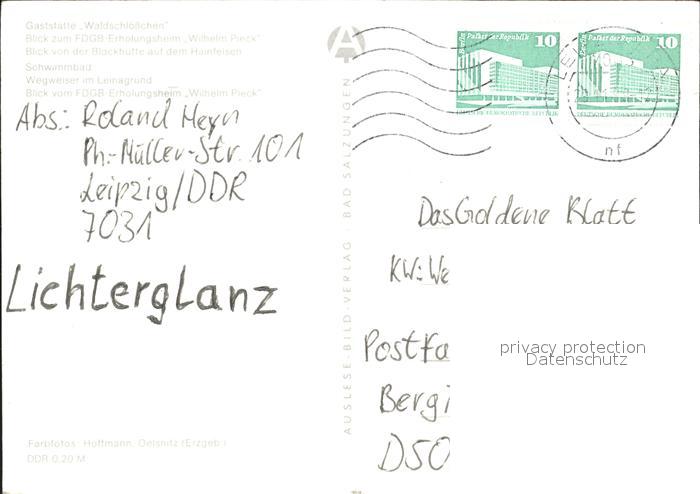 Gaststätte „Waldschlößchen"
Blick zum FDGB-Erholungsheim „Wilhelm Pieck"
Blick von der Blockhütte auf dem Hainfelsen
Schwimmbad
Wegweiser im Leinagrund
Blick vom FDGB-Erholungsheim „Wilhelm Pieck"
Abs.: Roland Meyn
Ph.-Müller-Str. 101
Leipzig/DDR
7031
Lichterglanz
Farbfotos: Hoffmann, Oelsnitz (Erzgeb.)
DDR 0,20 M
AUSLESE-BILD-VERLAG · BAD SALZUNGEN
Berlin Palast der Republik 10
DEUTSCHE DEMOKRATISCHE REPUBLIK
Berlin Palast der Republik 10
DEUTSCHE DEMOKRATISCHE REPUBLIK
nf
Das Goldene Blatt
KW: We
Postfa
Bergi
D50
privacy protection
Datenschutz